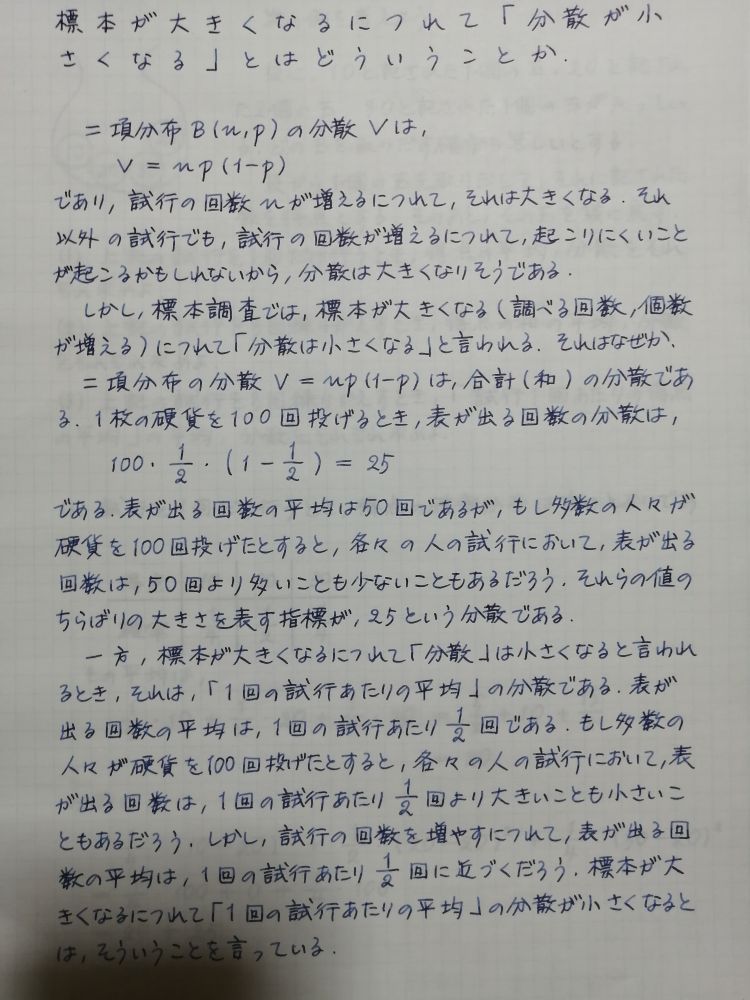 標本が大きくなるにつれて「分散が小
さくなる」とはどういうことか.
二項分布 B(n,p) の分散 V は,
V = np(1-p)
であり, 試行の回数 n が増えるにつれて, それは大きくなる. それ
以外の試行でも, 試行の回数が増えるにつれて, 起こりにくいこと
が起こるかもしれないから, 分散は大きくなりそうである.
しかし, 標本調査では, 標本が大きくなる (調べる回数, 個数
が増える) につれて「分散は小さくなる」と言われる. それはなぜか.
二項分布の分散 V = np(1-p) は, 合計 (和) の分散であ
る. 1枚の硬貨を100回投げるとき, 表が出る回数の分散は,
100・1/2・(1-1/2) = 25
である. 表が出る回数の平均は50回であるが, もし多数の人々が
硬貨を100回投げたとすると, 各々の人の試行において, 表が出る
回数は, 50回より多いことも少ないこともあるだろう. それらの値の
ちらばりの大きさを表す指標が, 25という分散である.
一方, 標本が大きくなるにつれて「分散」は小さくなると言われ
るとき, それは, 「1回の試行あたりの平均」の分散である. 表が
出る回数の平均は, 1回の試行あたり 1/2 回である. もし多数の
人々が硬貨を100回投げたとすると, 各々の人の試行において, 表
が出る回数は, 1回の試行あたり 1/2 回より大きいことも小さいこ
ともあるだろう. しかし, 試行の回数を増やすにつれて, 表が出る回
数の平均は, 1回の試行あたり 1/2 回に近づくだろう. 標本が大
きくなるにつれて「1回の試行あたりの平均」の分散が小さくなると
は, そういうことを言っている.